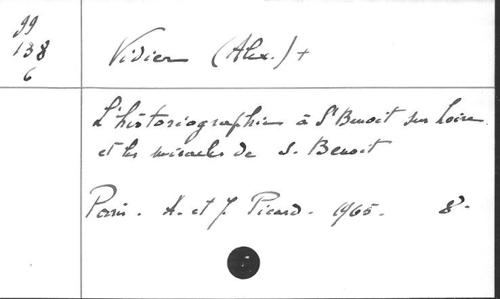 99
138
6
Vidier (Alex.) +
L'historiographie à St Benoit sur Loire
et les miracles de S. Benoit
Paris. A. et J. Picard. 1965. 8°